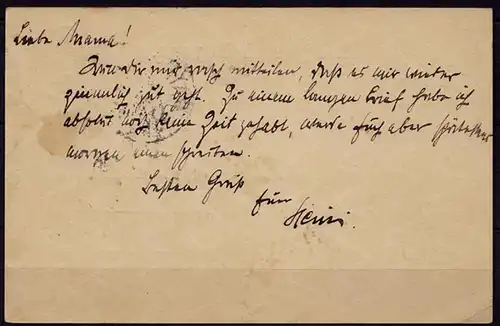 Liebe Mama!
Nur Dir nur rasch mitteilen, daß es mir wieder
ziemlich gut geht. Zu einem langen Brief habe ich
absolut noch keine Zeit gehabt, werde Euch aber spätestens
morgen einen schreiben.
Besten Gruß
Euer
Heini.